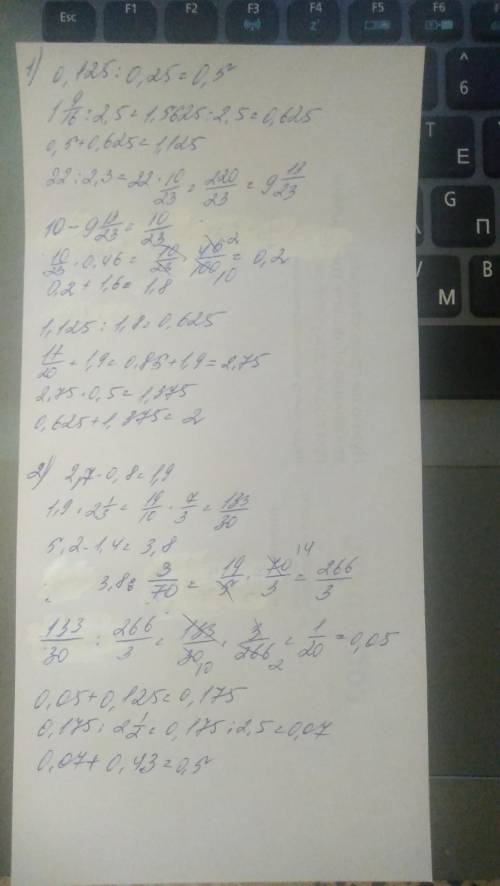 Esc F1 F2 F3 F4 F5 F6
1) 0,125 : 0,25 = 0,5
1 9/16 : 2,5 = 1,5625 : 2,5 = 0,625
0,5 + 0,625 = 1,125
22 : 2,3 = 22 · 10/23 = 220/23 = 9 13/23
10 - 9 13/23 = 10/23
10/23 · 0,46 = 10/23 · 46 2/100 10 = 0,2
0,2 + 1,6 = 1,8
1,125 : 1,8 = 0,625
17/20 + 1,9 = 0,85 + 1,9 = 2,75
2,75 · 0,5 = 1,375
0,625 + 1,375 = 2
2) 2,7 - 0,8 = 1,9
1,9 · 2 1/3 = 19/10 · 7/3 = 133/30
5,2 - 1,4 = 3,8
3,8 : 3/70 = 19/5 · 70 14/3 = 266/3
133/30 : 266/3 = 133/30 10 · 3/266 2 = 1/20 = 0,05
0,05 + 0,125 = 0,175
0,175 : 2 1/2 = 0,175 : 2,5 = 0,07
0,07 + 0,43 = 0,5
^
6
Т
Е
G
П
М